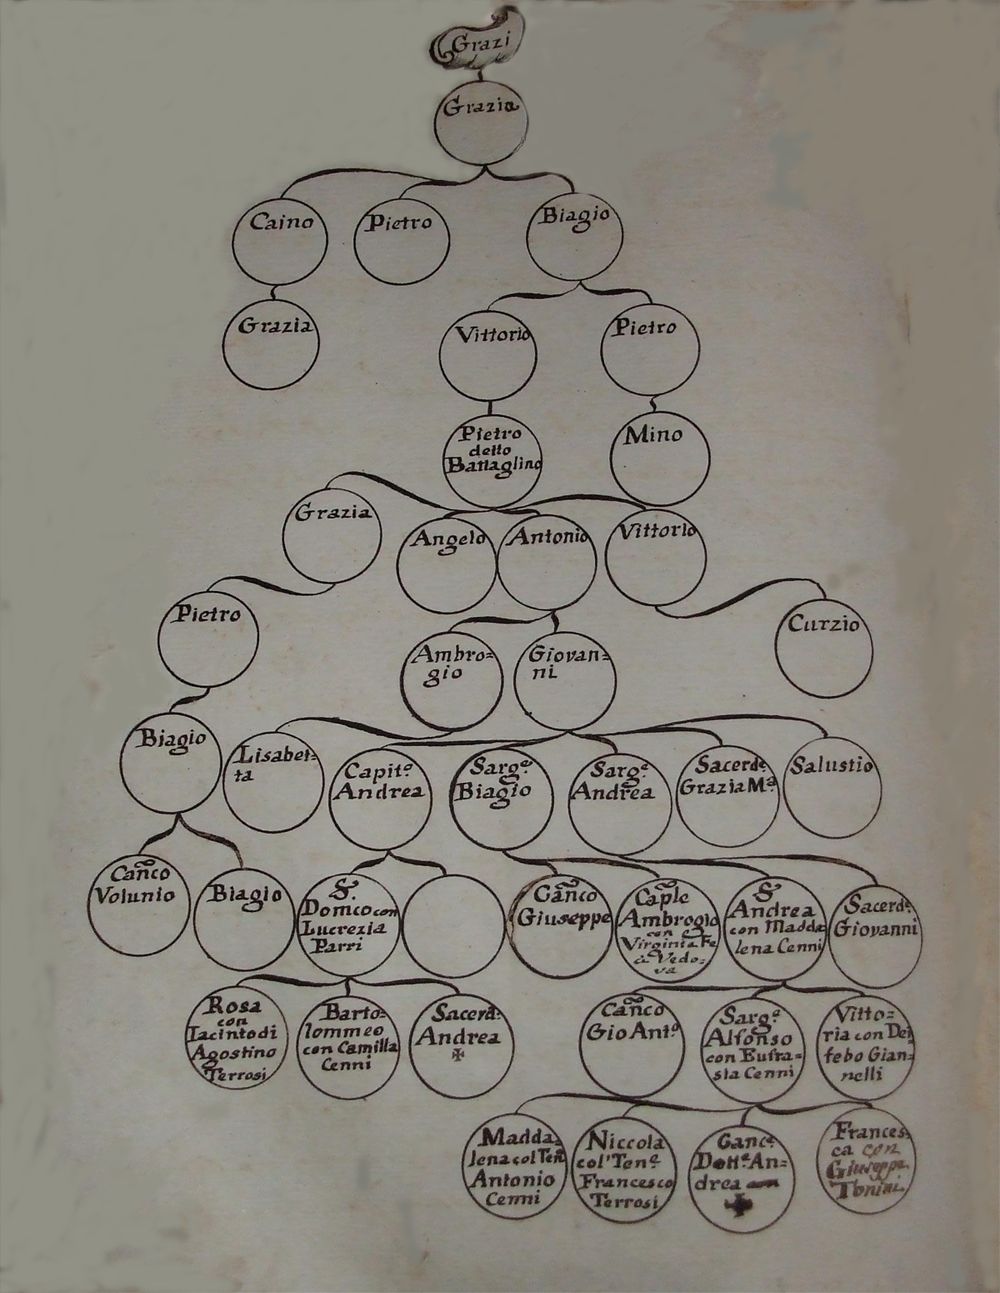 Grazi
Grazia
Caino
Pietro
Biagio
Grazia
Vittorio
Pietro
Pietro
detto
Battaglino
Mino
Grazia
Angelo
Antonio
Vittorio
Pietro
Ambro=
gio
Giovan=
ni
Curzio
Biagio
Lisabet=
ta
Capitº
Andrea
Sargᵉ
Biagio
Sargᵉ
Andrea
Sacerdᵉ
Grazia Mª
Salustio
Cañco
Volunio
Biagio
S.
Domco con
Lucrezia
Parri
Cañco
Giuseppe
Caple
Ambrogio
con
Virginia Fe
a Vedo=
va
S.
Andrea
con Madda
lena Cenni
Sacerdᵉ
Giovanni
Rosa
con
Iacinto di
Agostino
Terrosi
Barto=
lommeo
con Camilla
Cenni
Sacerd:
Andrea
✠
Cañco
Gio Antº
Sargᵉ
Alfonso
con Eufra=
sia Cenni
Vitto=
ria con Dei
febo Gian=
nelli
Madda=
lena col Ten
Antonio
Cenni
Niccola
col' Tenᵉ
Francesco
Terrosi
Cancº
Dottº An=
drea
✠
Frances
ca con
Giuseppe
Tonini